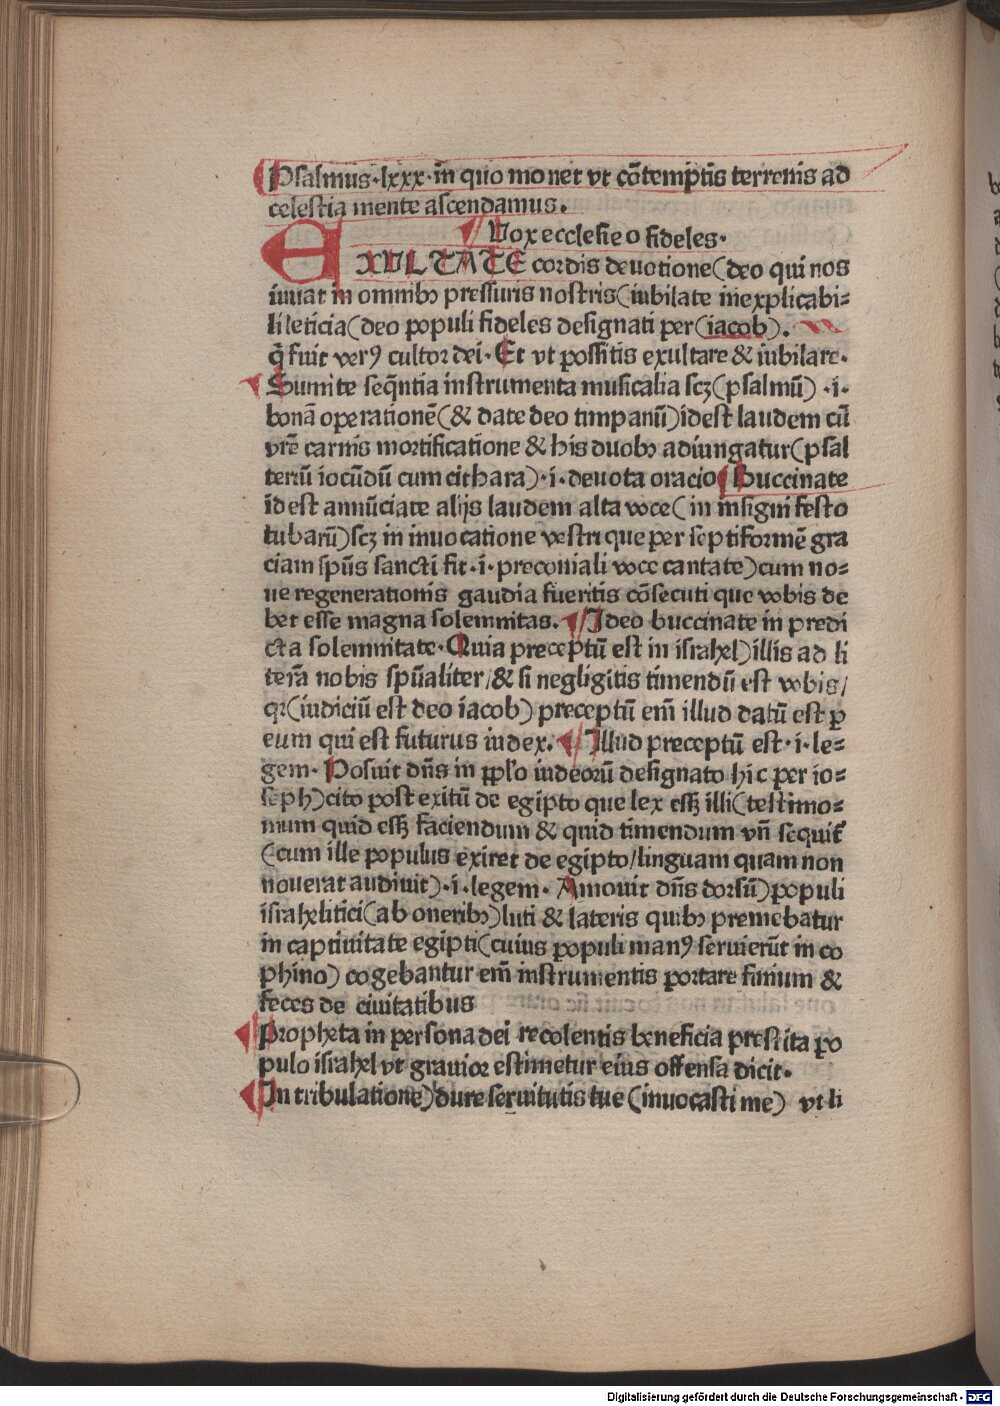 Psalmus·lxxx·in quo monet vt cōtemptis terrenis ad
celestia mente ascendamus.
Vox ecclesie o fideles·
EXVLTATE cordis deuotione(deo qui nos
iuuat in omnibꝫ pressuris nostris(iubilate inexplicabi⸗
li leticia(deo populi fideles designati per(iacob).
q̄ fuit verꝰ cultor dei· Et vt possitis exultare & iubilare·
Sumite seq̄ntia instrumenta musicalia scꝫ(psalmū) ·i·
bonā operationē(& date deo timpanū)idest laudem cū
vr̄e carnis mortificatione & his duobꝫ adiungatur(psal
teriū iocūdū cum cithara)·i·deuota oracio(Buccinate
idest annūciate alijs laudem alta voce(in insigni festo
tubarū)scꝫ in inuocatione vestri que per septiformē gra
ciam spūs sancti fit·i·preconiali voce cantate)cum no⸗
ue regenerationis gaudia fueritis cōsecuti que vobis de
bet esse magna solemnitas. Ideo buccinate in predi
cta solemnitate·Quia preceptū est in israhel)illis ad li
terā nobis spūaliter/& si negligitis timendū est vobis/
qꝛ(iudiciū est deo iacob)preceptū em̄ illud datū est ꝑ
eum qui est futurus iudex. Illud preceptū est·i·le⸗
gem· Posuit dn̄s in pplo iudeorū designato hic per io⸗
seph)cito post exitū de egipto que lex eſꝫ illi(testimo⸗
nium quid eſꝫ faciendum & quid timendum vn̄ sequit̄
(cum ille populus exiret de egipto/linguam quam non
nouerat audiuit)·i·legem· Amouit dn̄s dorsū)populi
israhelitici(ab oneribꝫ)luti & lateris quibꝫ premebatur
in captiuitate egipti(cuius populi manꝰ seruierūt in co
phino)cogebantur em̄ instrumentis portare fimum &
feces de ciuitatibus
Propheta in persona dei recolentis beneficia prestita po
pulo israhel vt grauior estimetur eius offensa dicit·
In tribulatione)dure seruitutis tue(inuocasti me) vt li
Digitalisierung gefördert durch die Deutsche Forschungsgemeinschaft - DFG